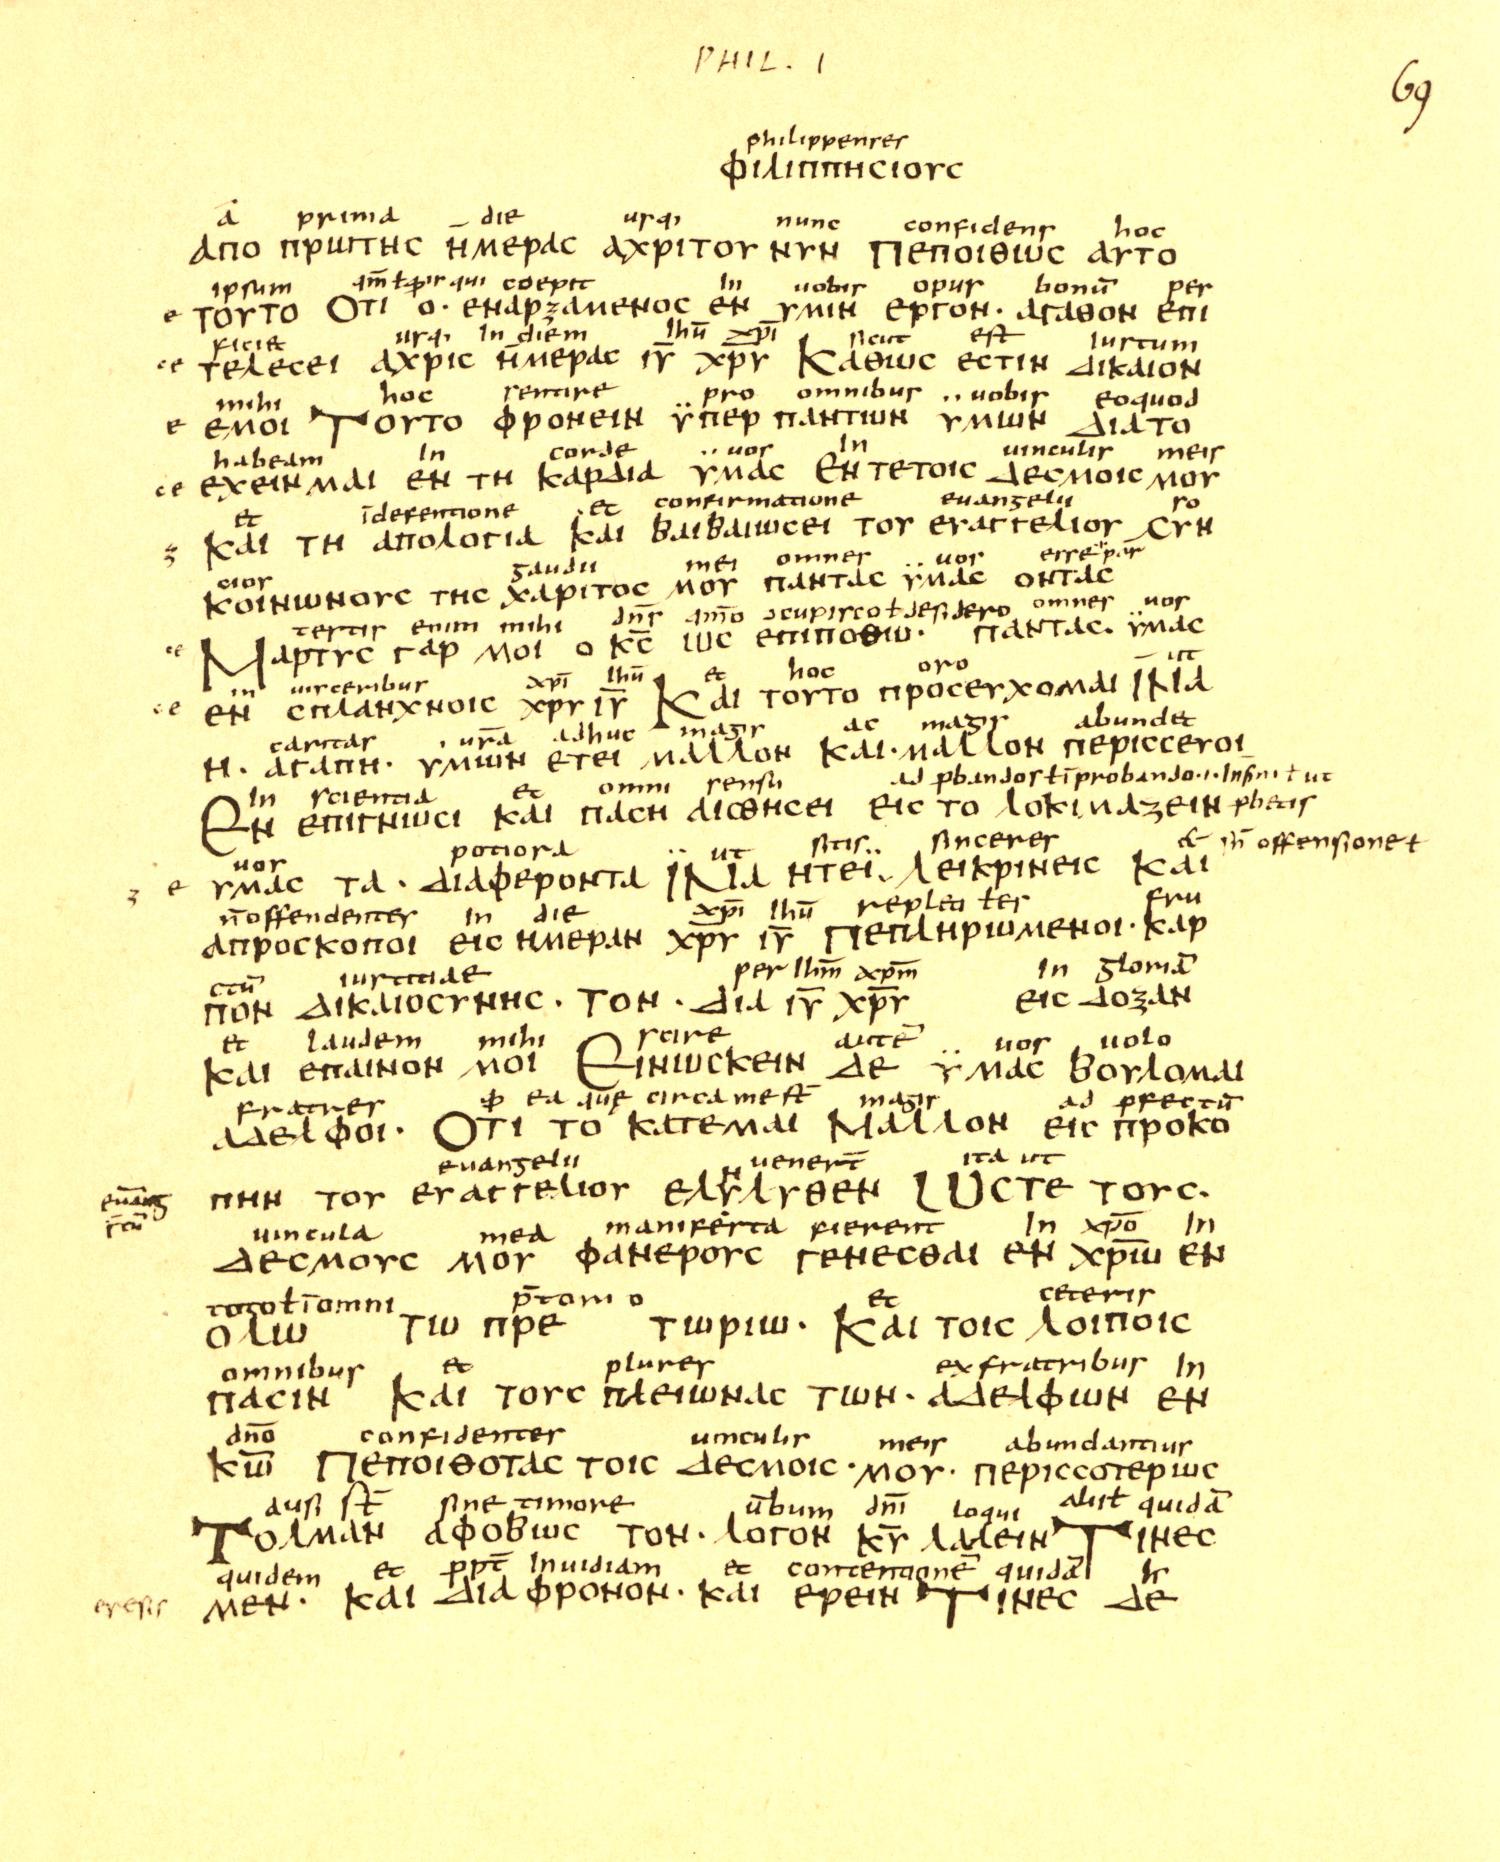 PHIL. I
69
philippenses
ΦΙΛΙΠΠΗCΙΟΥC
a prima die usq; nunc confidens hoc
ΑΠΟ ΠΡΩΤΗC ΗΜΕΡΑC ΑΧΡΙΤΟΥ ΝΥΝ ΠΕΠΟΙΘΩC ΑΥΤΟ
ipsum qui coepit in uobis opus bonū per
e ΤΟΥΤΟ ΟΤΙ Ο· ΕΝΑΡΖΑΜΕΝΟC ΕΝ ΥΜΙΝ ΕΡΓΟΝ· ΑΓΑΘΟΝ ΕΠΙ
ficiet usq; in diem ihū xpī sicut est iustum
ce ΤΕΛΕCΕΙ ΑΧΡΙC ΗΜΕΡΑC ΙΥ ΧΡΥ ΚΑΘΩC ΕCΤΙΝ ΔΙΚΑΙΟΝ
mihi hoc sentire pro omnibus uobis eoquod
e ΕΜΟΙ ΤΟΥΤΟ ΦΡΟΝΕΙΝ ΫΠΕΡ ΠΑΝΤΩΝ ΫΜΩΝ ΔΙΑΤΟ
habeam in corde uos in uinculis meis
ce ΕΧΕΙΝΜΑΙ ΕΝ ΤΗ ΚΑΡΔΙΑ ΫΜΑC ΕΝΤΕΤΟΙC ΔΕCΜΟΙC ΜΟΥ
et īdefentione et confirmatione euangelii so
ʒ ΚΑΙ ΤΗ ΑΠΟΛΟΓΙΑ ΚΑΙ ΒΑΙΒΑΙΩCΕΙ ΤΟΥ ΕΥΑΓΓΕΛΙΟΥ CΥΝ
cios gaudii mei omnes uos esse
ΚΟΙΝΩΝΟΥC ΤΗC ΧΑΡΙΤΟC ΜΟΥ ΠΑΝΤΑC ΫΜΑC ΟΝΤΑC
testis enim mihi dn̄s qm̄o cupisco ł desidero omnes uos
ce ΜΑΡΤΥC ΓΑΡ ΜΟΙ Ο ΚC ΙΩC ΕΠΙΠΟΘΩ· ΠΑΝΤΑC· ΫΜΑC
in uisceribus xpī ihū et hoc oro ut
ce ΕΝ CΠΛΑΝΧΝΟΙC ΧΡΥ ΙΥ ΚΑΙ ΤΟΥΤΟ ΠΡΟCΕΥΧΟΜΑΙ ΙΝΑ
caritas urā adhuc magis ac magis abundet
Η· ΑΓΑΠΗ· ΥΜΩΝ ΕΤΕΙ ΜΑΛΛΟΝ ΚΑΙ· ΜΑΛΛΟΝ ΠΕΡΙCCΕΥΟΙ
in scientia et omni sensu ad pbandos ł īprobando
ΕΝ ΕΠΙΓΝΩCΙ ΚΑΙ ΠΑCΗ ΑΙCΘΗCΕΙ ΕΙC ΤΟ ΛΟΚΙΜΑΖΕΙΝ pbetis
uos potiora ut sitis sinceres et sn̄ offensione ł
ʒ e ΥΜΑC ΤΑ· ΔΙΑΦΕΡΟΝΤΑ ΪΝΑ ΗΤΕΙ ΛΕΙΚΡΙΝΕΙC ΚΑΙ
n̄offendentes in die xpī ihū repleti ł es fru
ΑΠΡΟCΚΟΠΟΙ ΕΙC ΗΜΕΡΑΝ ΧΡΥ ΙΥ ΠΕΠΛΗΡΩΜΕΝΟΙ· ΚΑΡ
ctū iustitiae per ihm̄ xpm̄ in gloriā
ΠΟΝ ΔΙΚΑΙΟCΥΝΗC· ΤΟΝ· ΔΙΑ ΙΥ ΧΡΥ ΕΙC ΔΟΖΑΝ
et laudem mihi scire autē uos uolo
ΚΑΙ ΕΠΑΙΝΟΝ ΜΟΙ ΕΙΝΩCΚΕΙΝ ΔΕ ΫΜΑC ΒΟΥΛΟΜΑΙ
fratres ea que circa me sт̄ magis ad pfectū
ΑΔΕΛΦΟΙ· ΟΤΙ ΤΟ ΚΑΤΕΜΑΙ ΜΑΛΛΟΝ ΕΙC ΠΡΟΚΟ
euangelii uenerт̄ ita ut
ΠΗΝ ΤΟΥ ΕΥΑΓΓΕΛΙΟΥ ΕΛΥΛΥΘΕΝ ΩCΤΕ ΤΟΥC·
uincula mea manifesta fierent in xpō in
ΔΕCΜΟΥC ΜΟΥ ΦΑΝΕΡΟΥC ΓΕΝΕCΘΑΙ ΕΝ ΧΡΙΩ ΕΝ
toto ł īomni p̄torio et ceteris
ΟΛΩ ΤΩ ΠΡΕ ΤΩΡΙΩ· ΚΑΙ ΤΟΙC ΛΟΙΠΟΙC
omnibus et plures ex fratribus in
ΠΑCΙΝ ΚΑΙ ΤΟΥC ΠΛΕΙΩΝΑC ΤΩΝ· ΑΔΕΛΦΩΝ ΕΝ
dn̄o confidentes uinculis meis abundantius
ΚΩ ΠΕΠΟΙΘΟΤΑC ΤΟΙC ΔΕCΜΟΙC· ΜΟΥ· ΠΕΡΙCCΟΤΕΡΩC
ausi sт̄ sine timore ūbum dn̄i loqui quidā
ΤΟΛΜΑΝ ΑΦΟΒΩC ΤΟΝ· ΛΟΓΟΝ ΚΥ ΛΑΛΕΙΝ ΤΙΝΕC
quidem et ppт̄ inuidiam et contentionē quidā
eresis ΜΕΝ· ΚΑΙ ΔΙΑ ΦΡΟΝΟΝ· ΚΑΙ ΕΡΕΙΝ ΤΙΝΕC ΔΕ